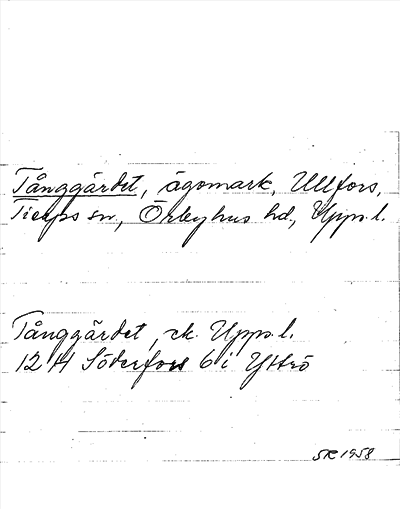 Tånggärdet, ägomark, Ullfors,
Tierps sn, Örbyhus hd, Upps.l.
Tånggärdet, ek. Upps.l.
12 H Söderfors 6 i Yttrö
SR 1958